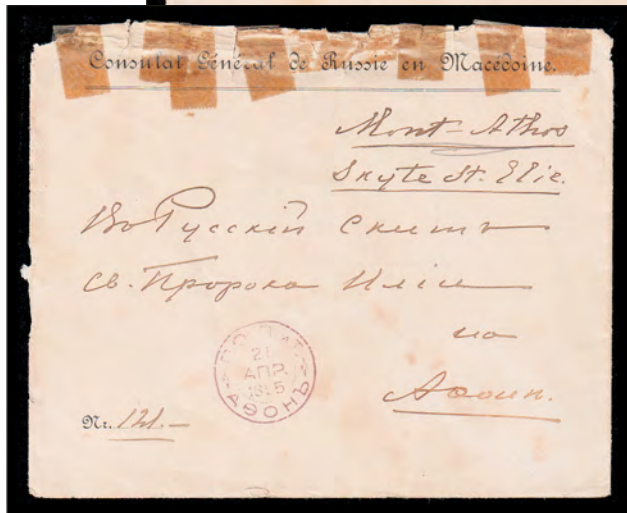 Consulat Général de Russie en Macédoine.
Mont-Athos
Skyte St. Elie.
Въ Русскій Скитъ
Св. Пророка Иліи
на
Аѳонѣ.
21
АПР.
АѲОНЪ
Nr. 121.—